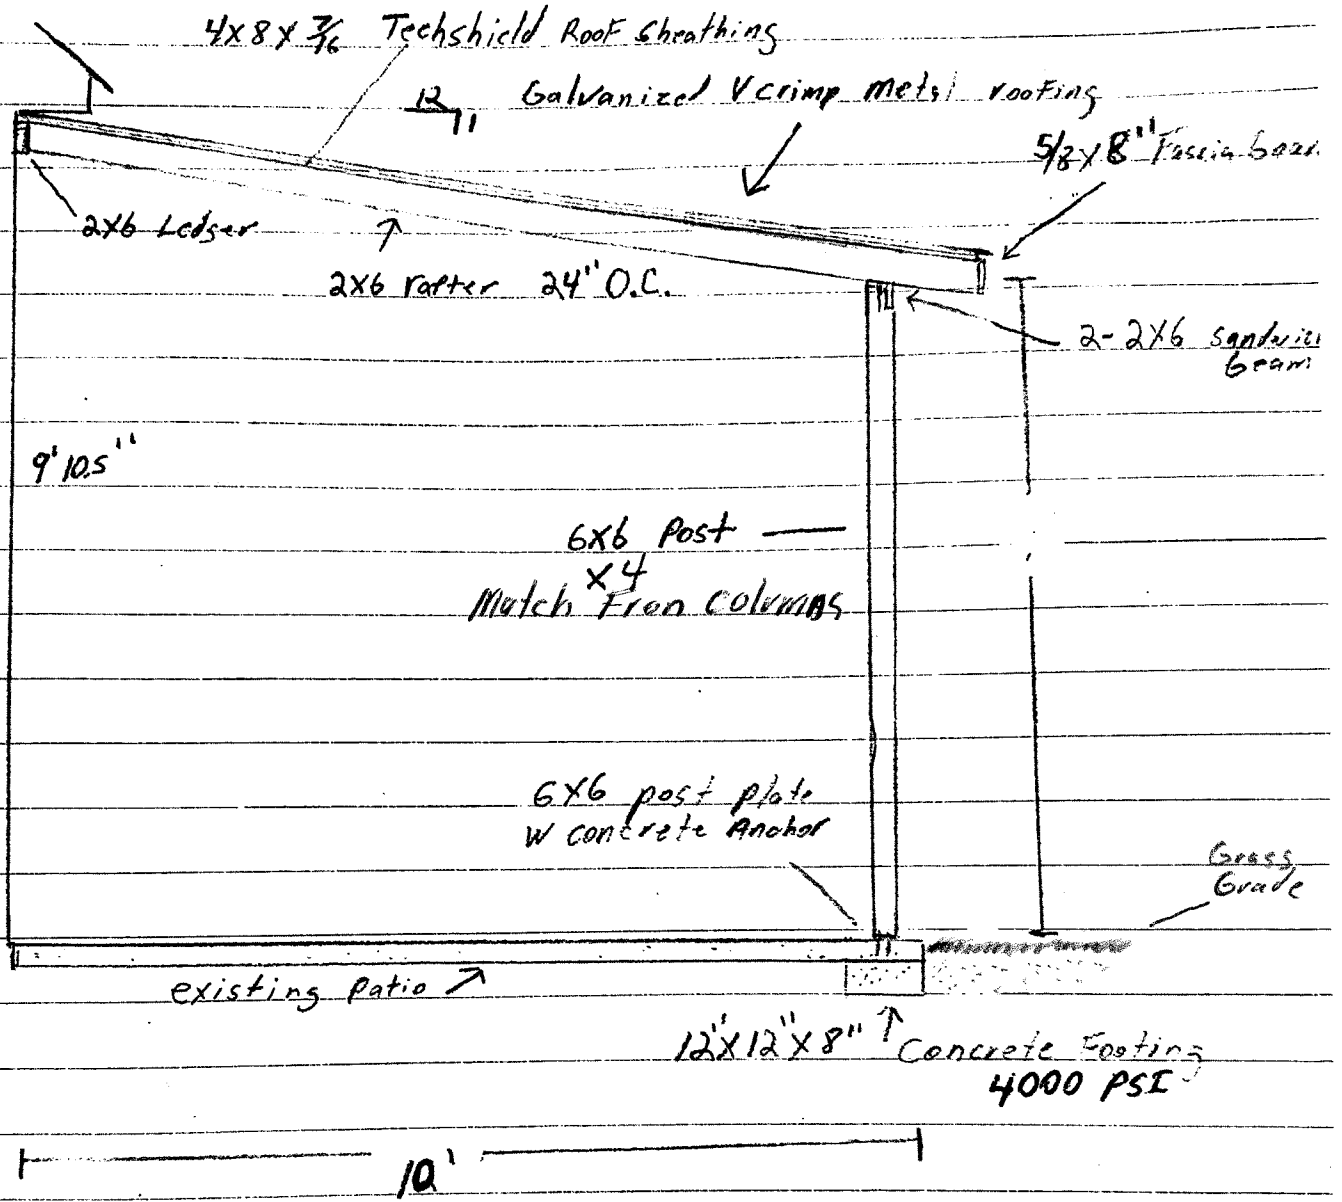 4x8x 7/16 Techshield Roof Sheathing
12
11
Galvanized V crimp metal roofing
5/8x8" Fascia
2x6 Ledger
2x6 rafter 24" O.C.
2- 2x6
beam
9' 10.5"
6x6 Post
x4
Match Fron Columns
6x6 post plate
W concrete Anchor
Grass
Grade
existing Patio
12"x12"x8" Concrete Footing
4000 PSI
10'